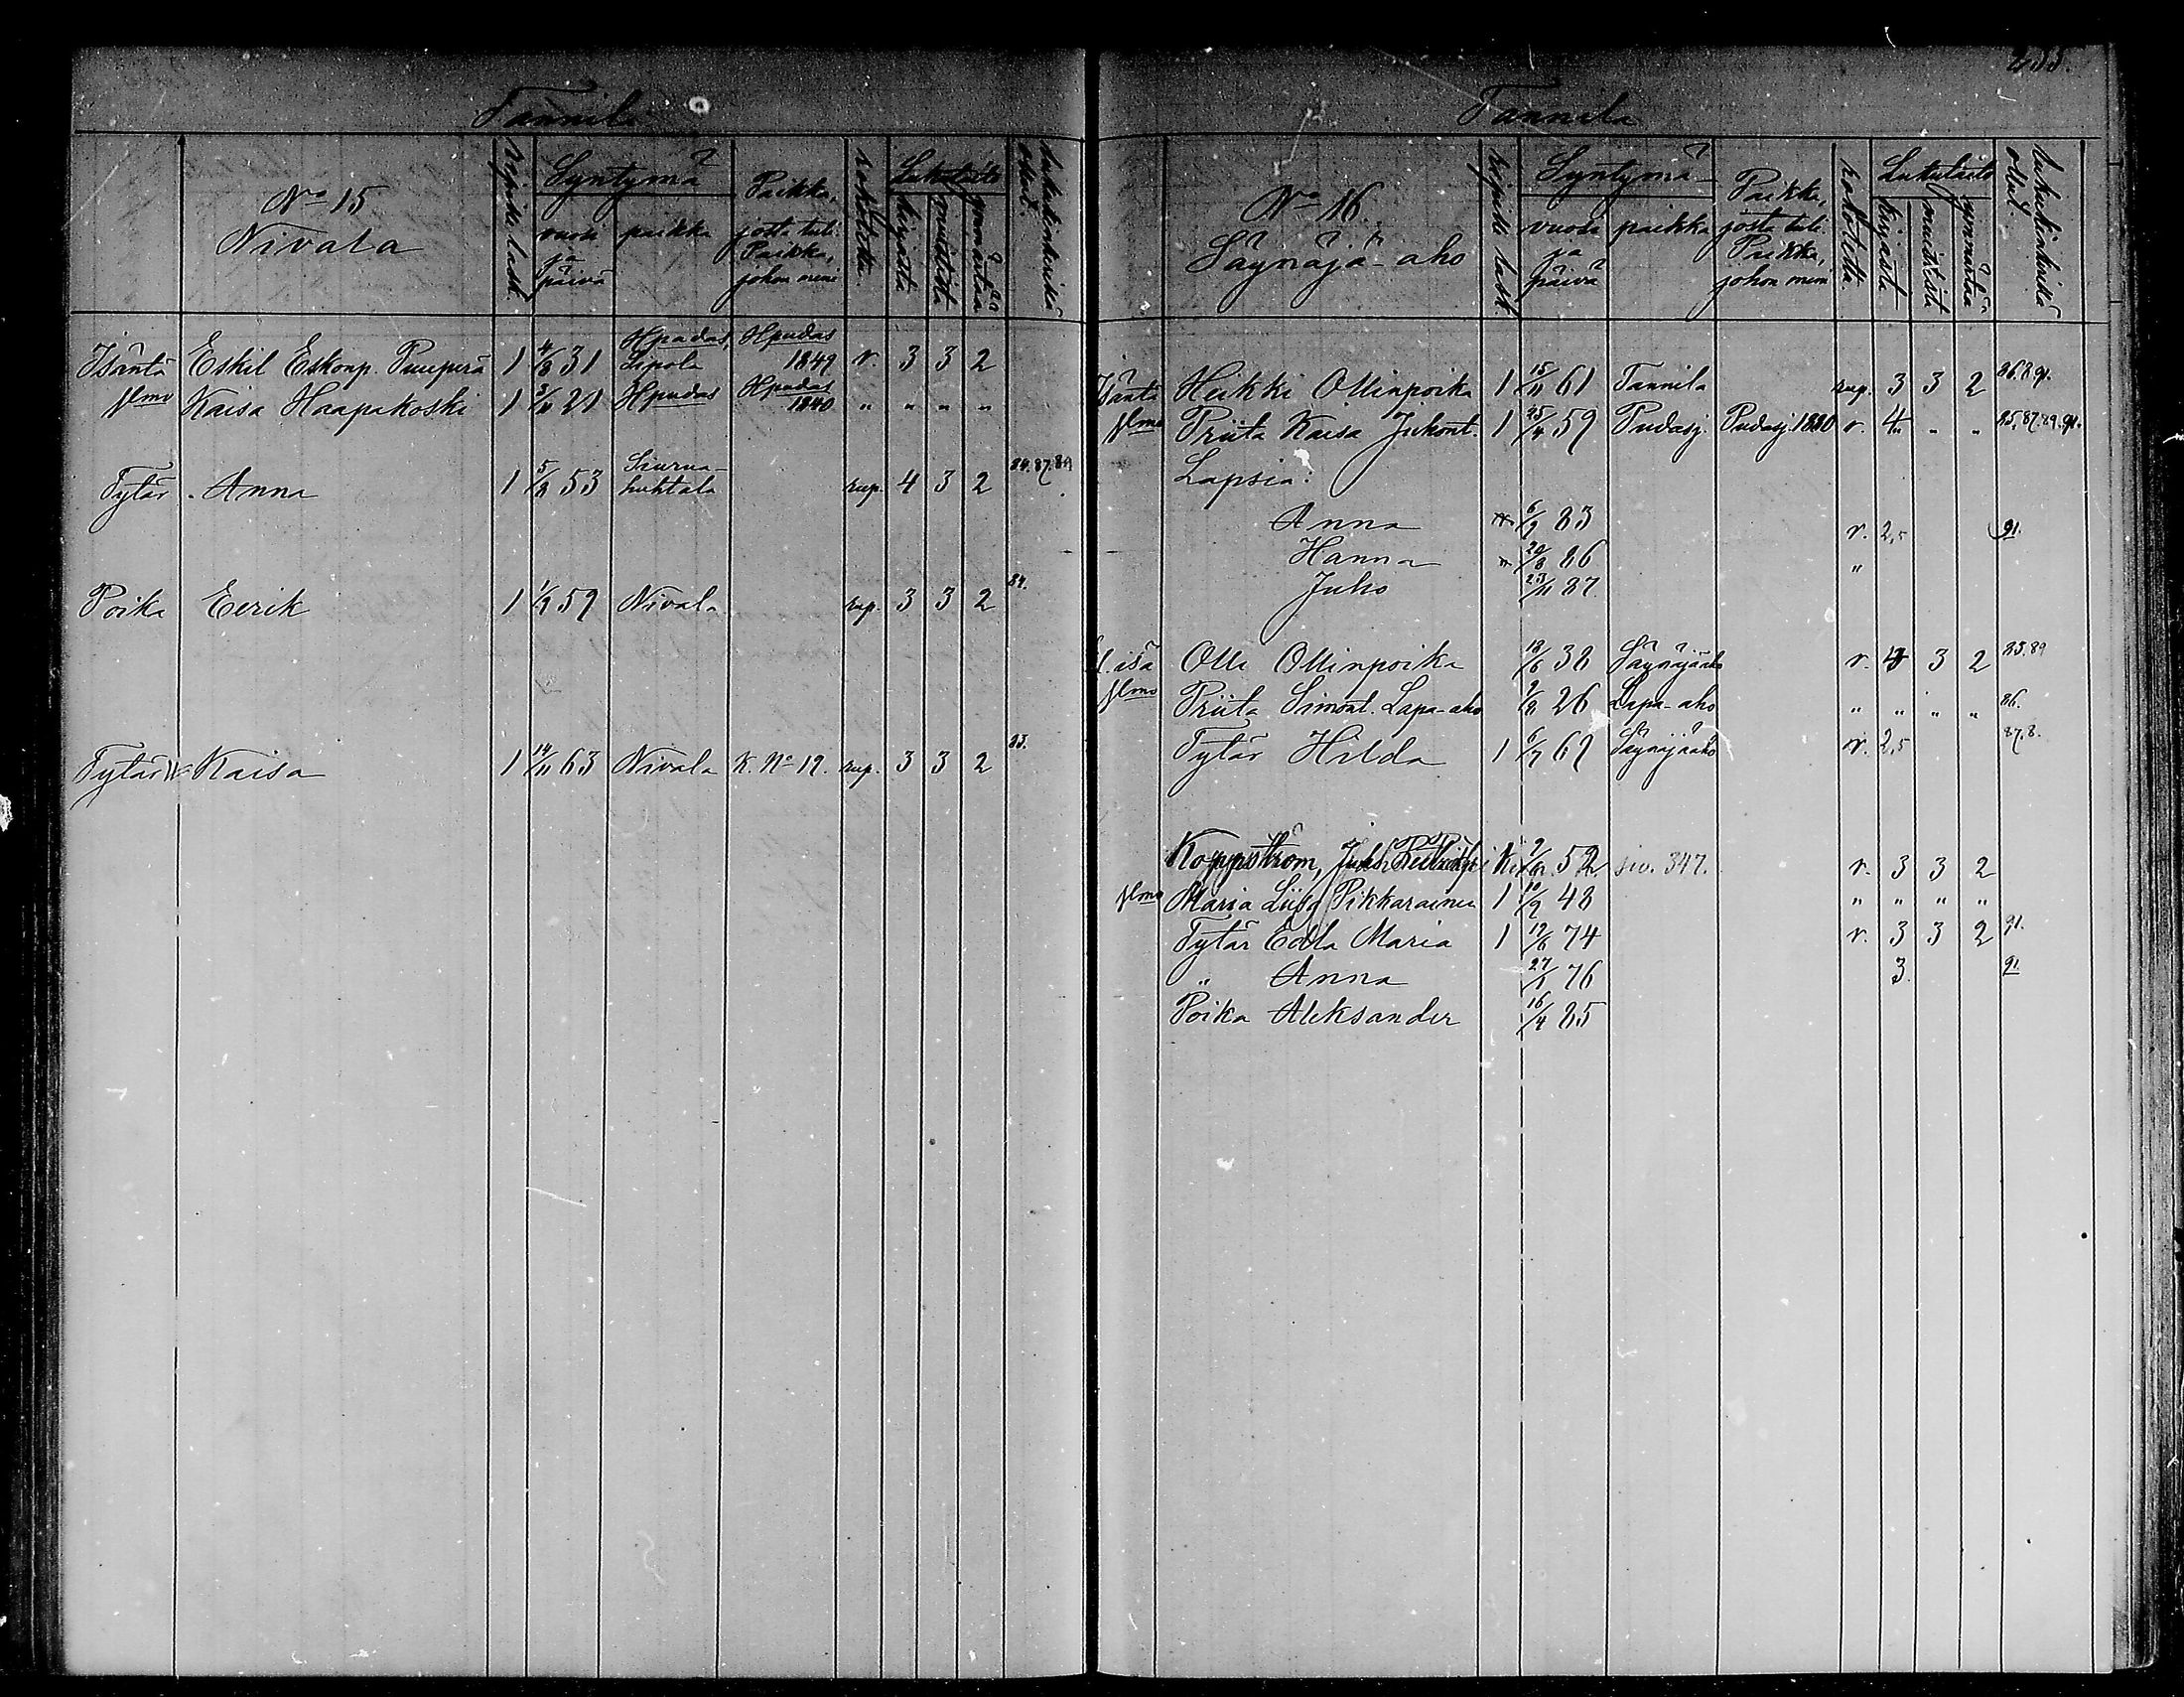 Tannila
No 15
Nivala
Syntymä
vuosi ja päivä
paikka
Paikka, josta tuli. Paikka, johon meni
rokotettu.
Lukutaito
kirjasta
muistista
ymmärtää
lukukinkerillä ollut.
Isäntä Eskil Eskonp. Puuperä 1 4/8 31 Hpudas, Sipola Hpudas 1849 r. 3 3 2
Kaisa Haapakoski 1 21 Hpudas Hpudas 1840 " " " "
Tytär Anna 1 5/8 53 Siurua-huhtala rup. 4 3 2 84.87.89
Poika Eerik 1 1/9 59 Nivala rup. 3 3 2 84.
Tytär Kaisa 1 14/11 63 Nivala K. No 19. rup. 3 3 2 83.
Tannila
No 16
Säynäjä-aho
Syntymä-
vuosi ja päivä
paikka
Paikka, josta tuli. Paikka, johon meni
rokotettu.
Lukutaito
kirjasta
muistista
ymmärtää
lukukinkerillä ollut.
Isäntä Heikki Ollinpoika 1 15/11 61 Tannila rup. 3 3 2
Priita Kaisa Juhont. 1 25/4 59 Pudasj. Pudasj. 1880 r. 4 " " 85.87.89.91.
Lapsia:
Anna 6/9 83 r. 2,5 91.
Hanna 20/8 86 "
Juho 23/11 87.
isä Olli Ollinpoika 18/6 38 Säynäjäaho r. 3 2 85.89
Priita Simont. Lapa-aho 9/8 26 Lapa-aho " " " " 86.
Tytär Hilda 1 6/7 69 Säynäjäaho r. 2,5 87.8.
Koppström, Juho 52 siv. 347. r. 3 3 2
Maria Liisa Pikkarainen 1 10/9 48 " " " "
Tytär Edla Maria 1 19/6 74 r. 3 3 2 91.
" Anna 27/1 76 3. 91
Poika Aleksander 16/4 85